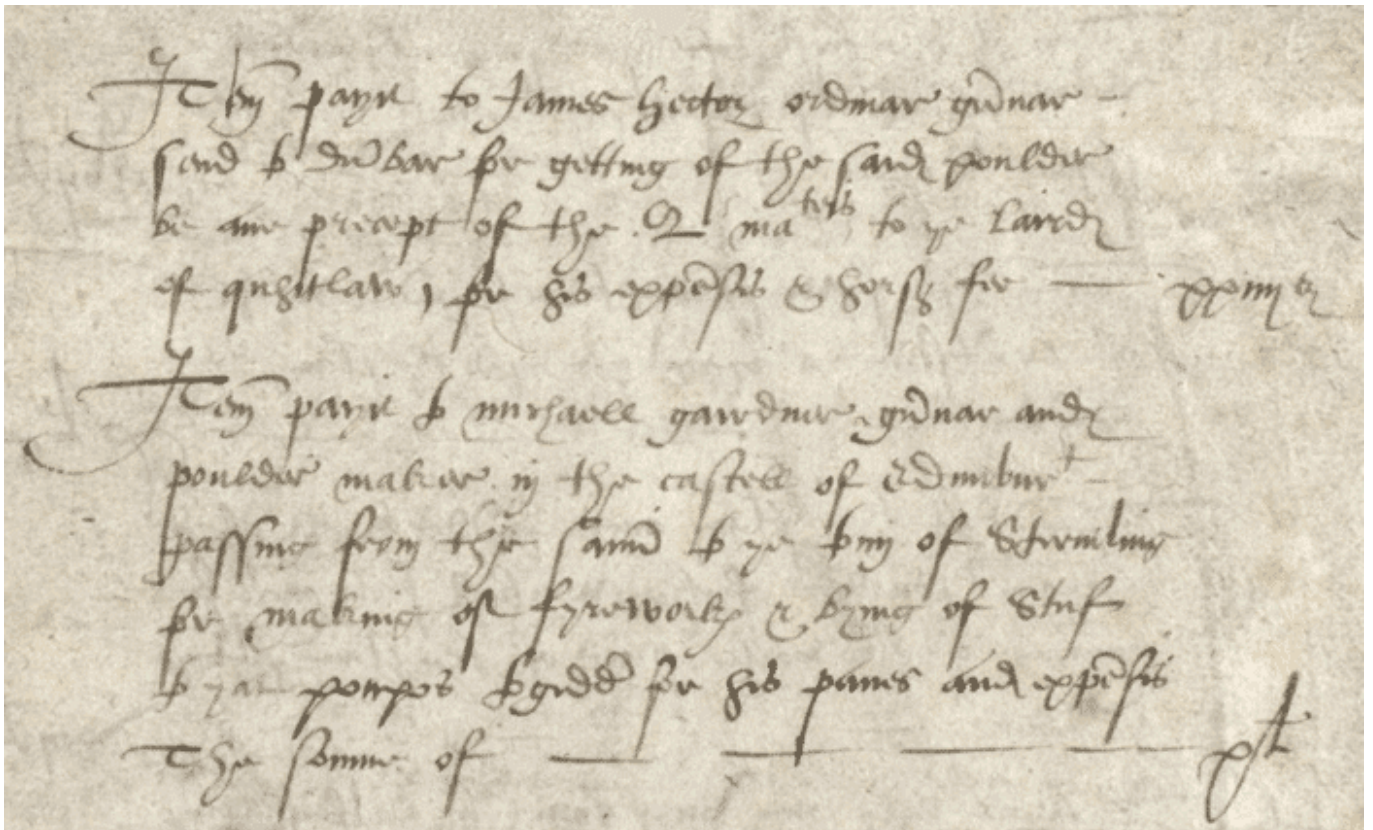 Item payit to James hector ordinar gunnar
send to dunbar for getting of the said poulder
be ane precept of the Q maties to ye laird
of quhitlaw, for his expensis & horss fie xxiiij s
Item payit to michaell gairdner gunnar and
poulder maker in the castell of Edinburt
passing from the samin to ye toun of Striviling
for making of fyreworks & bying of Stuf
to yat purpos togidder for his panes and expensis
The somme of xl